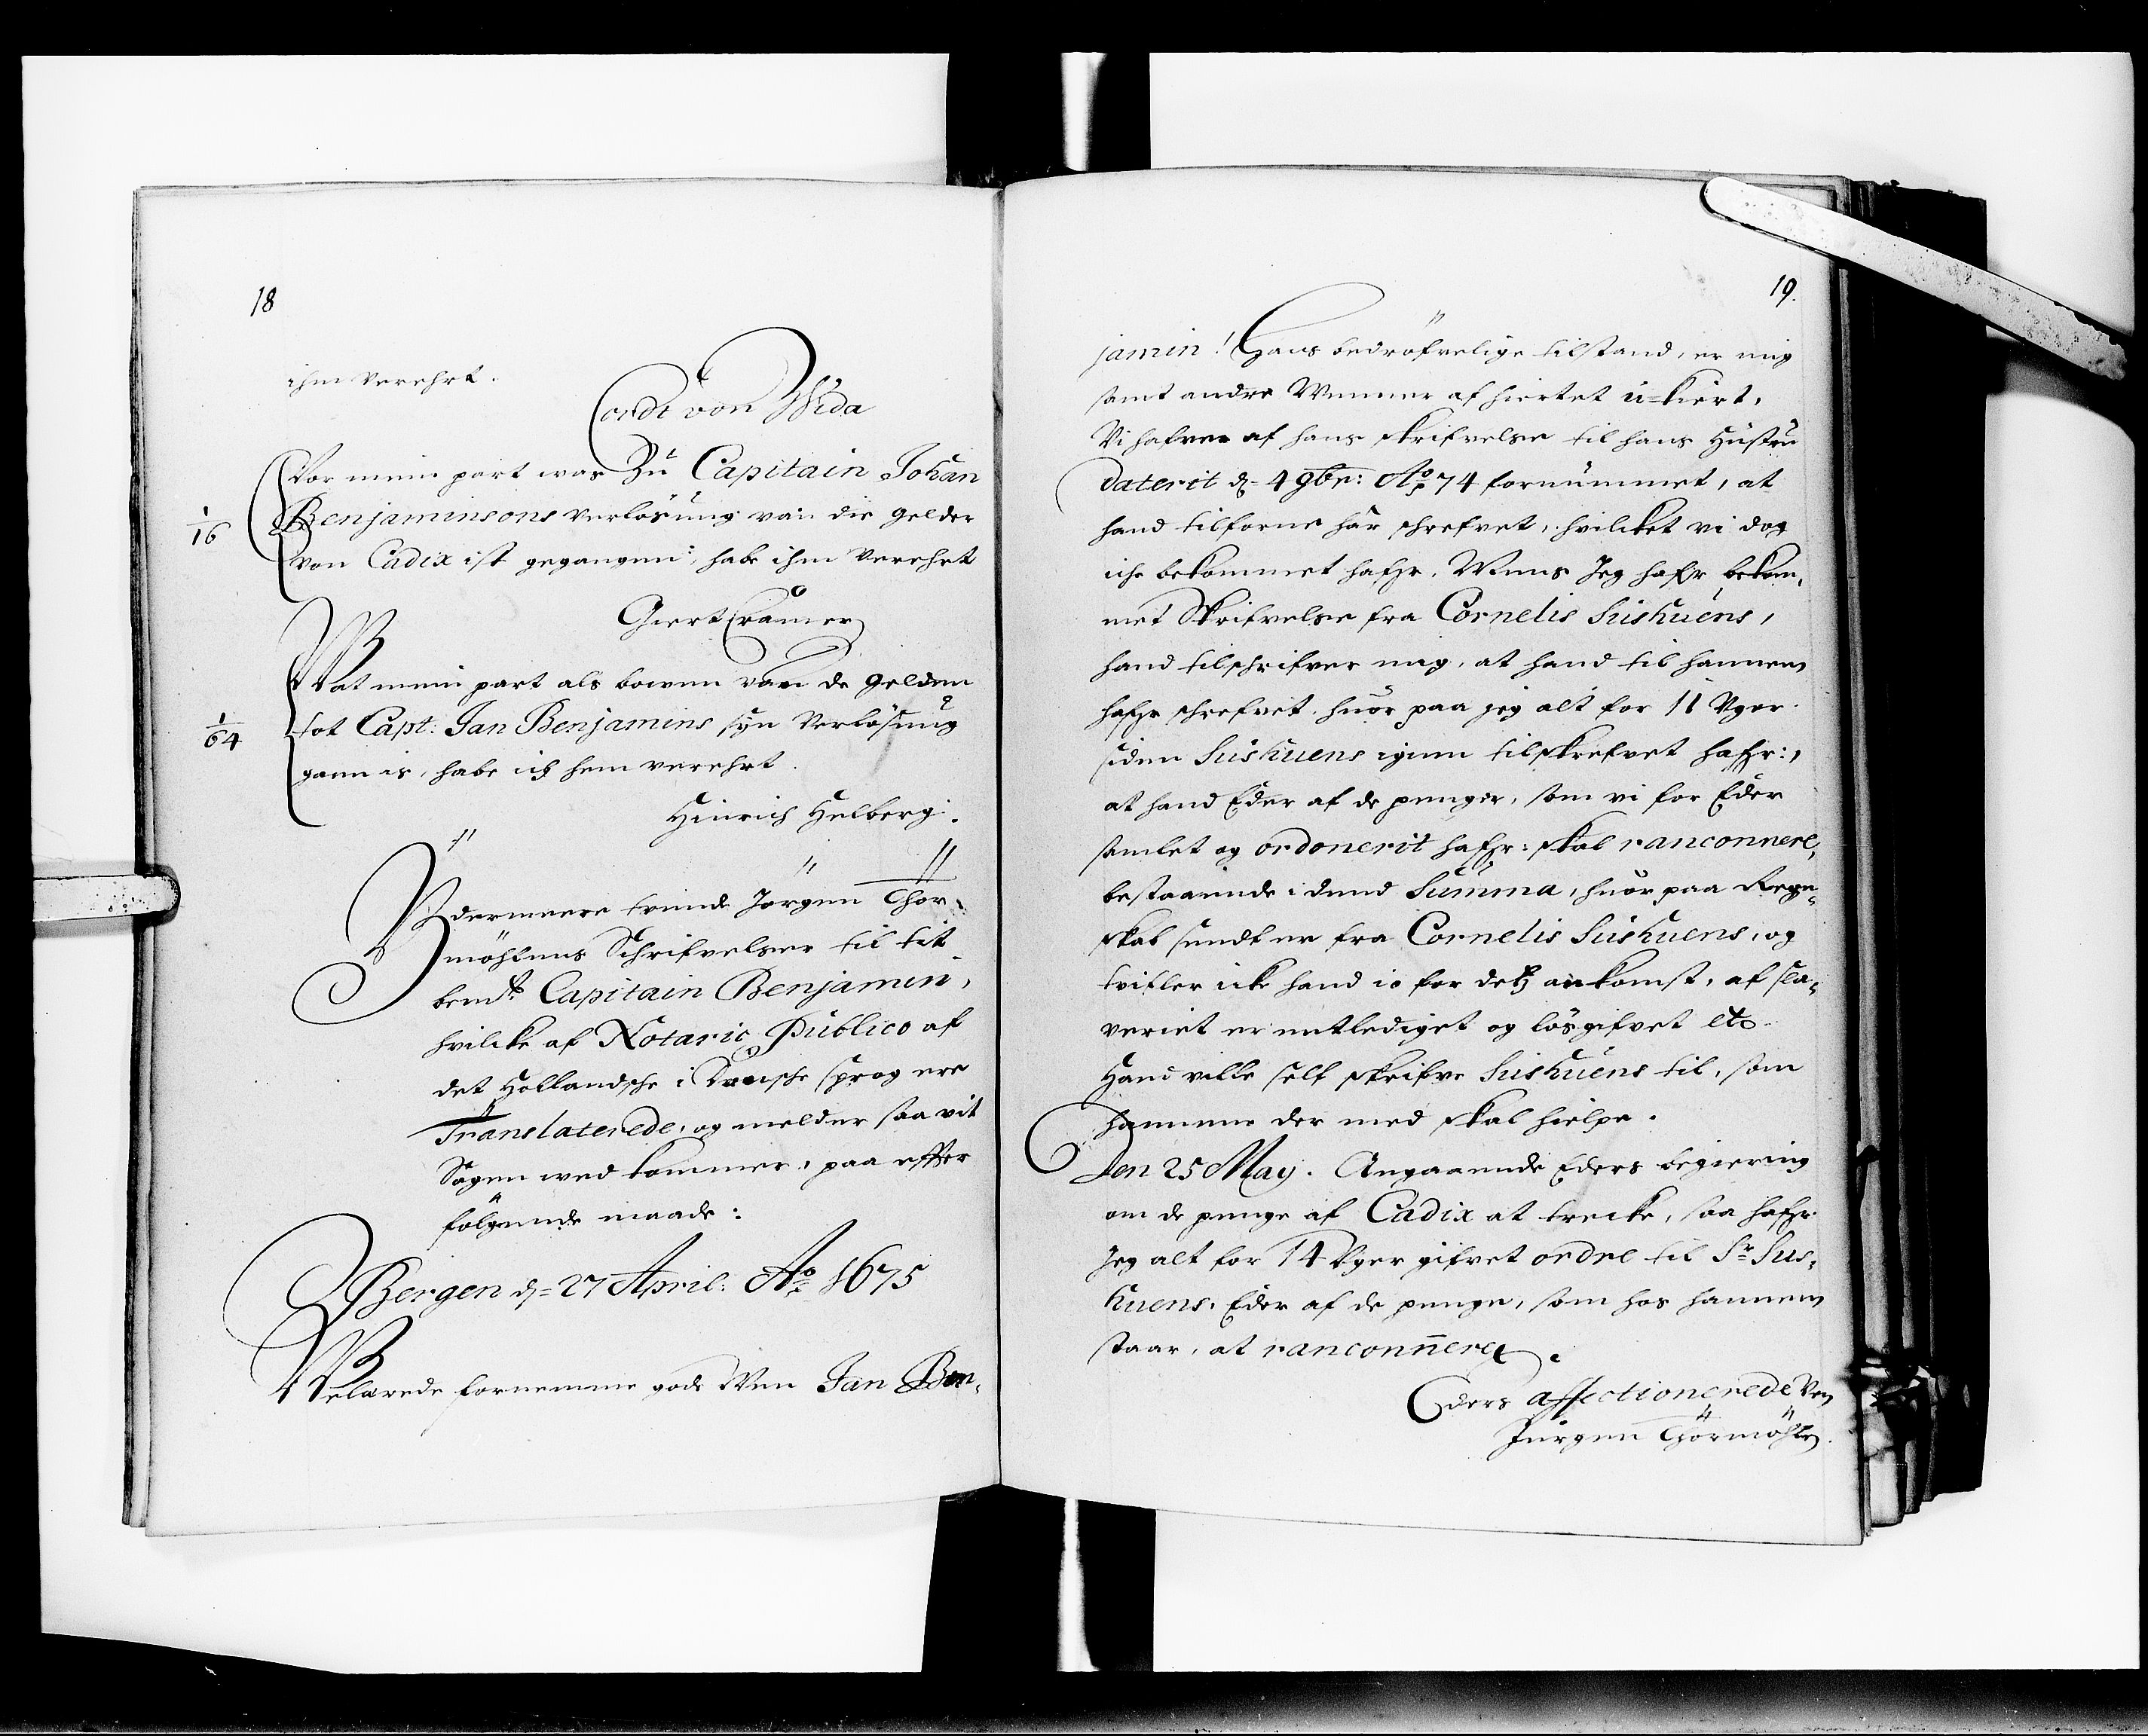 18
ihm verehrt.
Cordt von Wida
Vor mein part was Zu Capitain Johan
1/16 Benjaminsons verlösung van die gelder
von Cadix ist gegangen: habe ihm verehrt
Giert Cramer
Wat mein part als bowen van de gelden
1/64 tot Capt: Jan Benjamins syn Verlösung
gaen is, habe ich hem verehrt.
Hinrich Helberg.
Ydermeere tvende Jörgen Thor,
möhlens Schrifvelser til tit
bemdte Capitain Benjamin,
hvilcke af Notario Publico af
det Hollandsche i Dansche sprog ere
Translaterede, og melder saa vit
Sagen wed kommer, paa effter
fölgende maade:
Bergen d= 27 April: Ao 1675
Welærede fornemme gode Wen Jan Ben,
19.
jamin! Hans bedröfvelige tilstand, er mig
samt andre Wenner af hiertet u=kiert,
Vi hafver af hans skrifvelse til hans Hustru
daterit d= 4 9br: Ao 74 fornummet, at
hand tilforne har schrefvet, hvilcket vi dog
iche bekommet hafr. Mens Jeg hafr bekom,
met Skrifvelse fra Cornelis Suskuens,
hand tilschrifver mig, at hand til hannem
hafr schrefvet. huor paa jeg alt for 11 Uger
siden Suskuens igien tilskrefvet hafr:,
at hand Eder af de penger, som vi for Eder
samlet og ordonerit hafr: skal ranconnere,
bestaaende i dend Summa, huor paa Regn,
skab sendt er fra Cornelis Suskuens, og
tvifler icke hand io for detz ankomst, af sla,
veriet er entlediget og lösgifvet etc
Hand wille self skrifve Suskuens til, som
hannem der med skal hielpe.
Den 25 May. Angaaende Eders begiering
om de penge af Cadix at trecke, saa hafr
Jeg alt for 14 Uger gifvet ordre til Sr Sus,
kuens, Eder af de penge, som hos hannem
staar, at ranconnere.
Eders affectionerede Ven
Jürgen Thormöhlen.